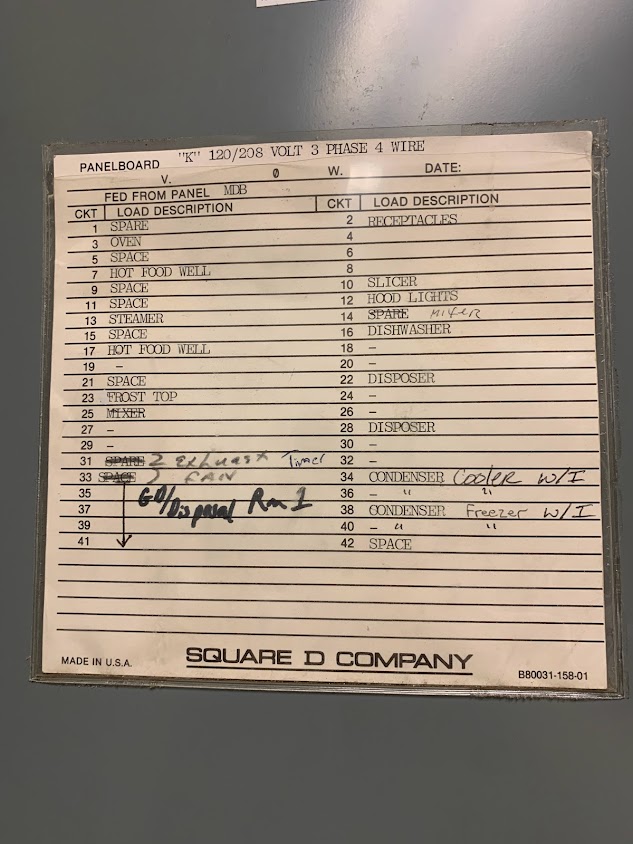 PANELBOARD "K" 120/208 VOLT 3 PHASE 4 WIRE
V. Ø W. DATE:
FED FROM PANEL MDB
CKT LOAD DESCRIPTION CKT LOAD DESCRIPTION
1 SPARE 2 RECEPTACLES
3 OVEN 4
5 SPACE 6
7 HOT FOOD WELL 8
9 SPACE 10 SLICER
11 SPACE 12 HOOD LIGHTS
13 STEAMER 14 SPARE Mixer
15 SPACE 16 DISHWASHER
17 HOT FOOD WELL 18 -
19 - 20 -
21 SPACE 22 DISPOSER
23 FROST TOP 24 -
25 MIXER 26 -
27 - 28 DISPOSER
29 - 30 -
31 SPARE Exhaust Timer 32 -
33 SPACE FAN 34 CONDENSER Cooler W/I
35 36 - " "
37 GD/Disposal Rm 1 38 CONDENSER Freezer W/I
39 40 - " "
41 42 SPACE
MADE IN U.S.A. SQUARE D COMPANY B80031-158-01